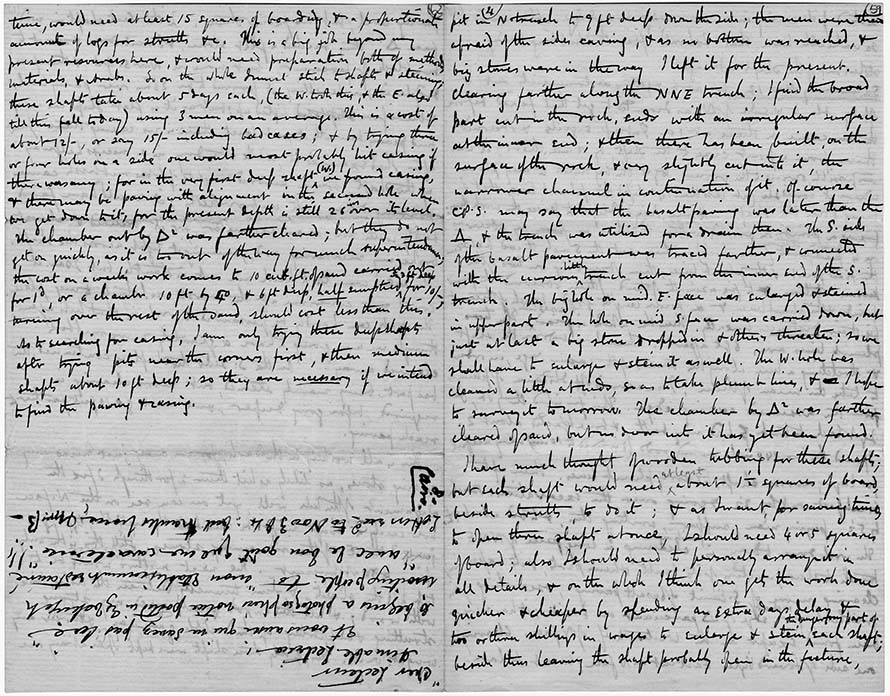 time, would need at least 15 squares of boarding, & a proportionate
amount of logs for struts &c. This is a big job beyond my
present resources here, & would need preparation both of
materials, & struts. So on the whole I must stick to shafts & steening
these shafts take about 5 days each, (the W. took this, & the E. also
till this fall to day) using 3 men on an average. This is a cost of
about 12/-, or say 15/- including bad cases; & by trying three
or four holes on a side one would most probably hit casing if
there was any; for in the very first deep shaft (N) we found casing,
& there may be paving with alignment in the second hole when
we get down to it, for the present depth is still 25 over its level.
The chamber out by Δ² was farther cleared; but they do not
get on quickly, as it is too out of the way for much superintendence,
the cost on a weeks work comes to 10 cub. ft. of sand carried out
for 1d, or a chamber 10 ft by & 6 ft deep, half emptied, for 10/-
turning over the rest of the sand, should cost less than this.
As to searching for casing, I am only trying these deep shafts
after trying pits near the corners first, & then medium
shafts about 10 ft deep; so they are necessary if we intend
to find the paving & casing.
"Chers Lecteurs
Aimable Lectrice,
Et vous aussi qui ne savez pas lire"
So begins a photographer's notice posted in
inviting people to "mon établissement restauré
avec le bon goût qui me caractérise"!!!
Letters recd to Nov 3 & 4: but thanks
Cairo
(5)
pit in N trench to 9 ft deep down the side; the men were then
afraid of the sides caving, & as no bottom was reached, &
big stones were in the way I left it for the present.
Clearing farther along the NNE trench; I find the broad
part cut in the rock, ends with an irregular surface
at the inner end; & then there has been built, on the
surface of the rock, & very slightly cut into it, the
narrower channel in continuation of it. Of course
C.P.S. may say that the basalt paving was later than the
Δ, & the trench was utilized for a drain then. The S. side
of the basalt pavement was traced farther, & connected
with the curious little trench cut from the inner end of the S.
trench. The big hole on mid. E. face was enlarged & steined
in upper part. The hole on mid S. face was carried down, but
just at last a big stone dropped in & others threaten; so we
shall have to enlarge & stein it as well. The W. hole was
cleaned a little at ends, so as to take plumb lines, & I hope
to survey it tomorrow. The chamber by Δ² was farther
cleared of sand, but no door into it has yet been found.
I have much thought of wooden tubbing for these shafts;
but each shaft would need at least about 1½ squares of board,
beside struts to do it; & as I want for saving time,
to open three shafts at once, I should need 4 or 5 squares
of board; also I should need to personally arrange it in
all details, & on the whole I think one get the work done
quicker & cheaper by spending an extra days delay &
two or three shillings in wages to enlarge & stein the dangerous part of each shaft;
beside thus leaving the shaft probably open in the future,